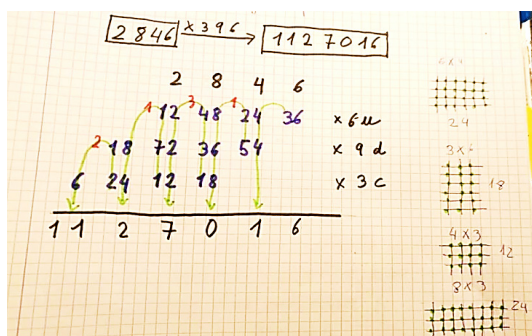 2846 x396 → 1127016
2 8 4 6
1 12 3 48 1 24 36 x 6u
2 18 72 36 54 x 9d
6 24 12 18 x 3c
1 1 2 7 0 1 6
24
3x6
18
4x3
12
8x3
24